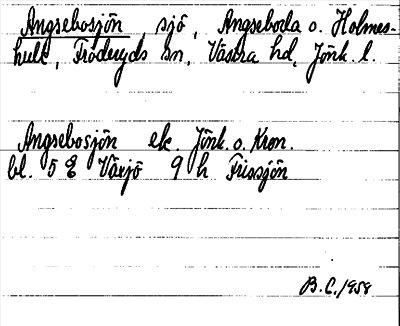 Angsebosjön, sjö, Angseboda o. Holmes-
hult, Fröderyds sn, Västra hd, Jönk. l.
Angsebosjön ek. Jönk. o. Kron.
bl. 5 E Växjö 9 h Frissjön
B.C. 1958